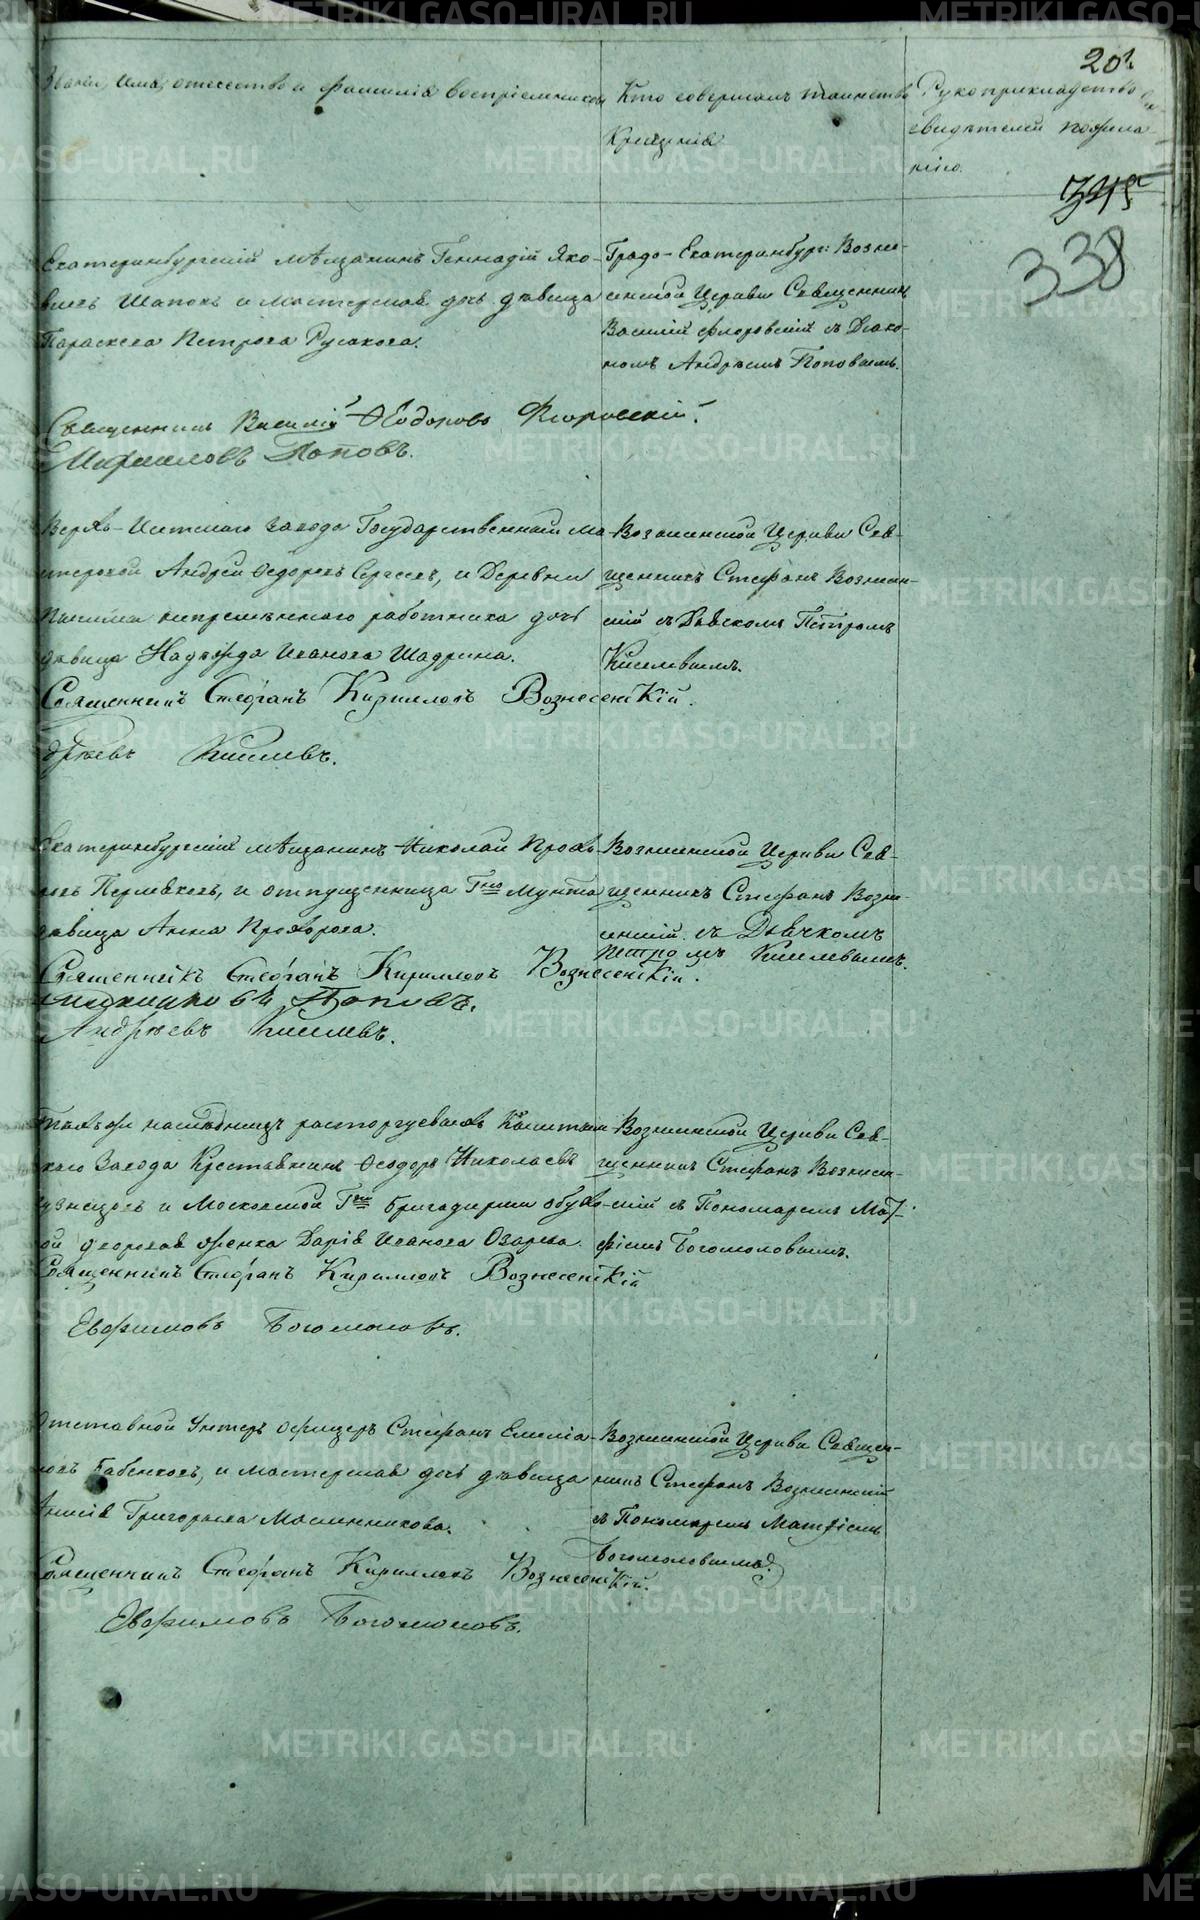 20
Званіе, имя, отечество и фамилія воспріемниковъ
Кто совершалъ таинство
Крещенія
Рукоприкладство
свидѣтелей по жела
нію.
345
338
Екатеринбургскій мѣщанинъ Геннадій Яко-
влевъ Шаповъ и мастерская дочь дѣвица
Параскева Петрова Русакова.
Градо-Екатеринбург: Возне-
сенской Церкви Священникъ
Василій Флоровскій съ Діако-
номъ Андреемъ Поповымъ.
Священникъ Василій Ѳеодоровъ Флоровскій.
Поповъ.
Верхъ-Исетскаго завода Государственный ма-
стеровой Андрей Ѳедоровъ Сергеевъ, и Деревни
непремѣннаго работника дочь
дѣвица Надежда Иванова Шадрина.
Вознесенской Церкви Свя-
щенникъ Стефанъ Вознесен-
скій съ Дьячкомъ Петромъ
Киселевымъ.
Священникъ Стефанъ Кирилловъ Вознесенскій.
Киселевъ.
Екатеринбургскій мѣщанинъ Николай Прохо-
ровъ и отпущенница Гна
дѣвица Анна Прохорова.
Вознесенской Церкви Свя-
щенникъ Стефанъ Возне-
сенскій съ Дьячкомъ
Петромъ Киселевымъ.
Священникъ Стефанъ Кирилловъ Вознесенскій.
Поповъ.
Андреевъ Киселевъ.
наслѣдницъ Расторгуевыхъ Кыштым-
скаго Завода Крестьянинъ Ѳеодоръ Николаевъ
и Московской Гжи Бригадирши
дворовая женка Дарія Иванова
Вознесенской Церкви Свя-
щенникъ Стефанъ Вознесен-
скій съ Пономаремъ Мат-
фіемъ Богомоловымъ.
Священникъ Стефанъ Кирилловъ Вознесенскій
Евфимовъ Богомоловъ.
Отставной Унтеръ Офицеръ Стефанъ Емелья-
новъ Бабенковъ, и мастерская дочь дѣвица
Анисія Григорьева Масленникова.
Вознесенской Церкви Священ-
никъ Стефанъ Вознесенскій
съ Пономаремъ Матфіемъ
Богомоловымъ
Священникъ Стефанъ Кирилловъ Вознесенскій.
Евфимовъ Богомоловъ.
METRIKI.GASO-URAL.RU